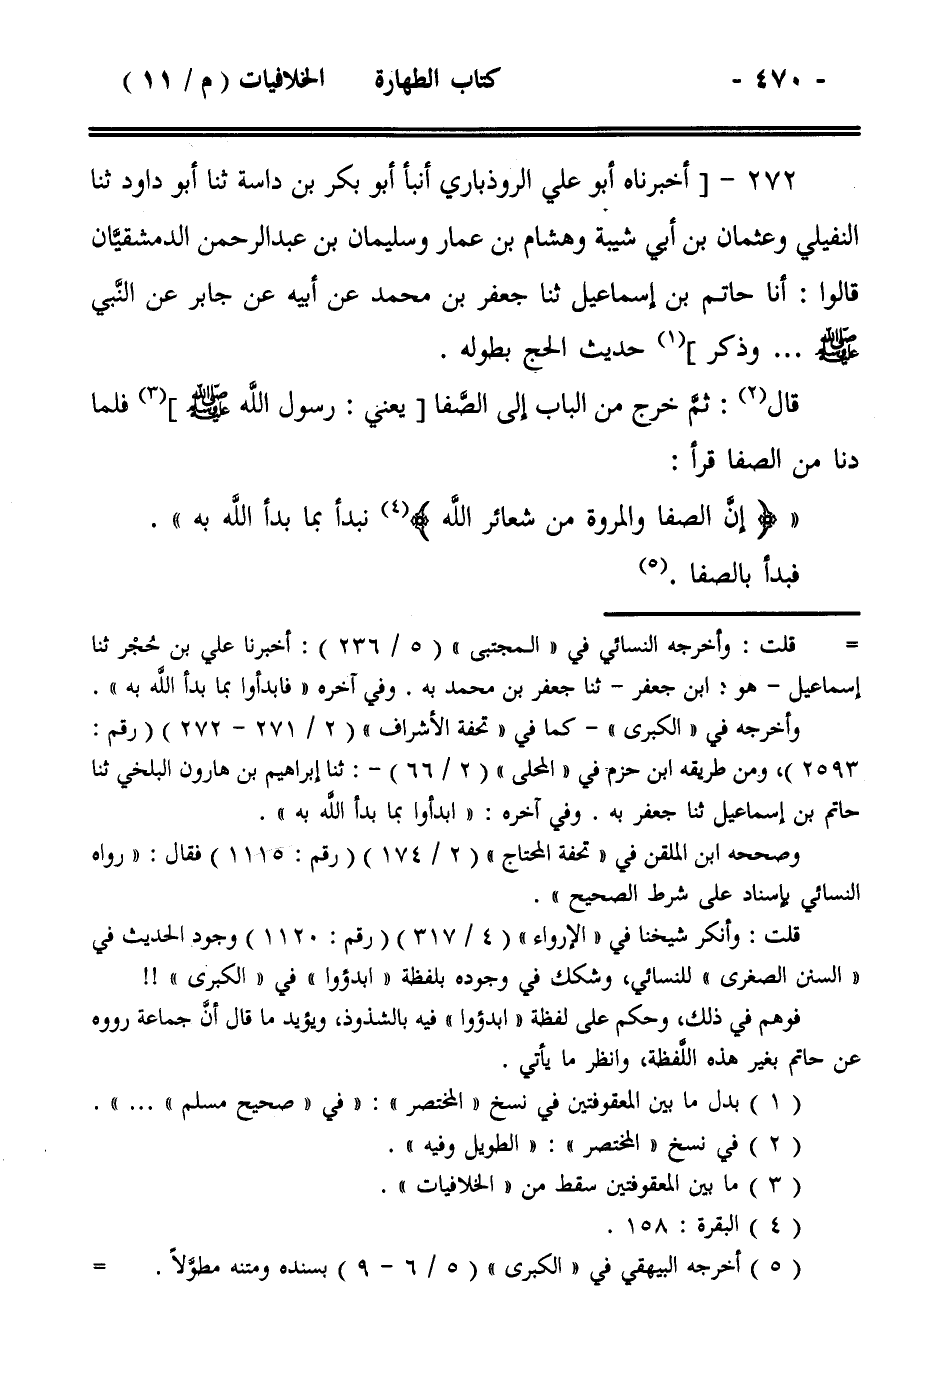 - ٤٧٠ - كتاب الطهارة الخلافيات ( م / ١١ )
٢٧٢ - [ أخبرناه أبو علي الروذباري أنبأ أبو بكر بن داسة ثنا أبو داود ثنا
النفيلي وعثمان بن أبي شيبة وهشام بن عمار وسليمان بن عبدالرحمن الدمشقيَّان
قالوا : أنا حاتم بن إسماعيل ثنا جعفر بن محمد عن أبيه عن جابر عن النَّبي
ﷺ ... وذكر ](١) حديث الحج بطوله .
قال(٢) : ثمَّ خرج من الباب إلى الصَّفا [ يعني : رسول اللَّه ﷺ ](٣) فلما
دنا من الصفا قرأ :
« ﴿ إنَّ الصفا والمروة من شعائر اللَّه ﴾(٤) نبدأ بما بدأ اللَّه به » .
فبدأ بالصفا .(٥)
= قلت : وأخرجه النسائي في « المجتبى » ( ٥ / ٢٣٦ ) : أخبرنا علي بن حُجْر ثنا
إسماعيل - هو : ابن جعفر - ثنا جعفر بن محمد به . وفي آخره « فابدأوا بما بدأ اللَّه به » .
وأخرجه في « الكبرى » - كما في « تحفة الأشراف » ( ٢ / ٢٧١ - ٢٧٢ ) ( رقم :
٢٥٩٣ )، ومن طريقه ابن حزم في « المحلى » ( ٢ / ٦٦ ) - : ثنا إبراهيم بن هارون البلخي ثنا
حاتم بن إسماعيل ثنا جعفر به . وفي آخره : « ابدأوا بما بدأ اللَّه به » .
وصححه ابن الملقن في « تحفة المحتاج » ( ٢ / ١٧٤ ) ( رقم : ١١١٥ ) فقال : « رواه
النسائي بإسناد على شرط الصحيح » .
قلت : وأنكر شيخنا في « الإرواء » ( ٤ / ٣١٧ ) ( رقم : ١١٢٠ ) وجود الحديث في
« السنن الصغرى » للنسائي، وشكك في وجوده بلفظة « ابدؤوا » في « الكبرى » !!
فوهم في ذلك، وحكم على لفظة « ابدؤوا » فيه بالشذوذ، ويؤيد ما قال أنَّ جماعة رووه
عن حاتم بغير هذه اللَّفظة، وانظر ما يأتي .
( ١ ) بدل ما بين المعقوفتين في نسخ « المختصر » : « في « صحيح مسلم » ... » .
( ٢ ) في نسخ « المختصر » : « الطويل وفيه » .
( ٣ ) ما بين المعقوفتين سقط من « الخلافيات » .
( ٤ ) البقرة : ١٥٨ .
( ٥ ) أخرجه البيهقي في « الكبرى » ( ٥ / ٦ - ٩ ) بسنده ومتنه مطوَّلاً . =